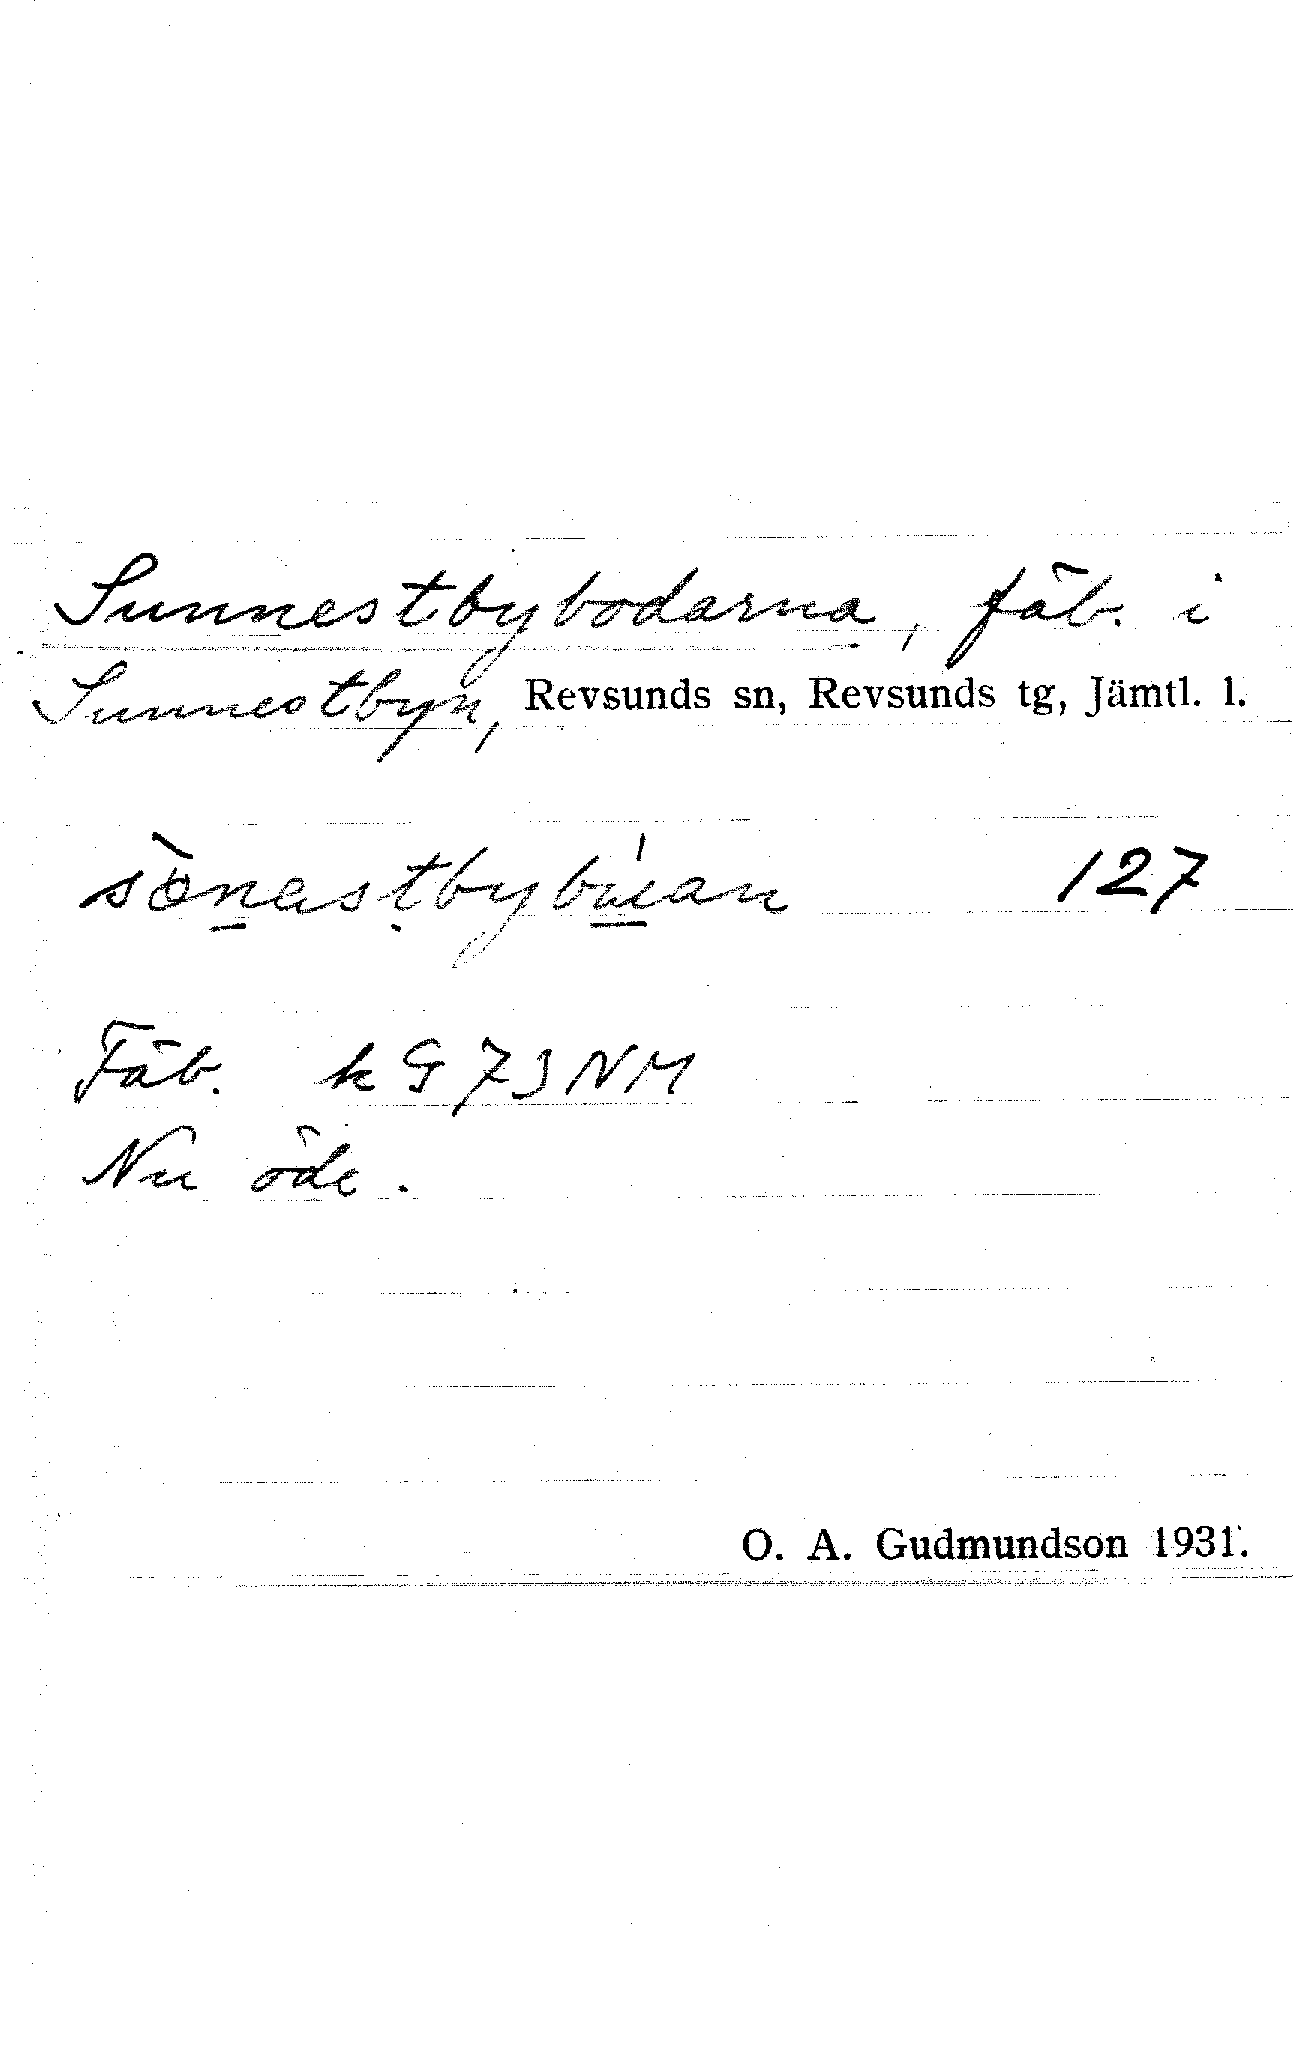 Sunnestbybodarna, fäb. i
Sunnestbyn, Revsunds sn, Revsunds tg, Jämtl. l.
127
Fäb. k G 73 NM
Nu öde.
O. A. Gudmundson 1931.